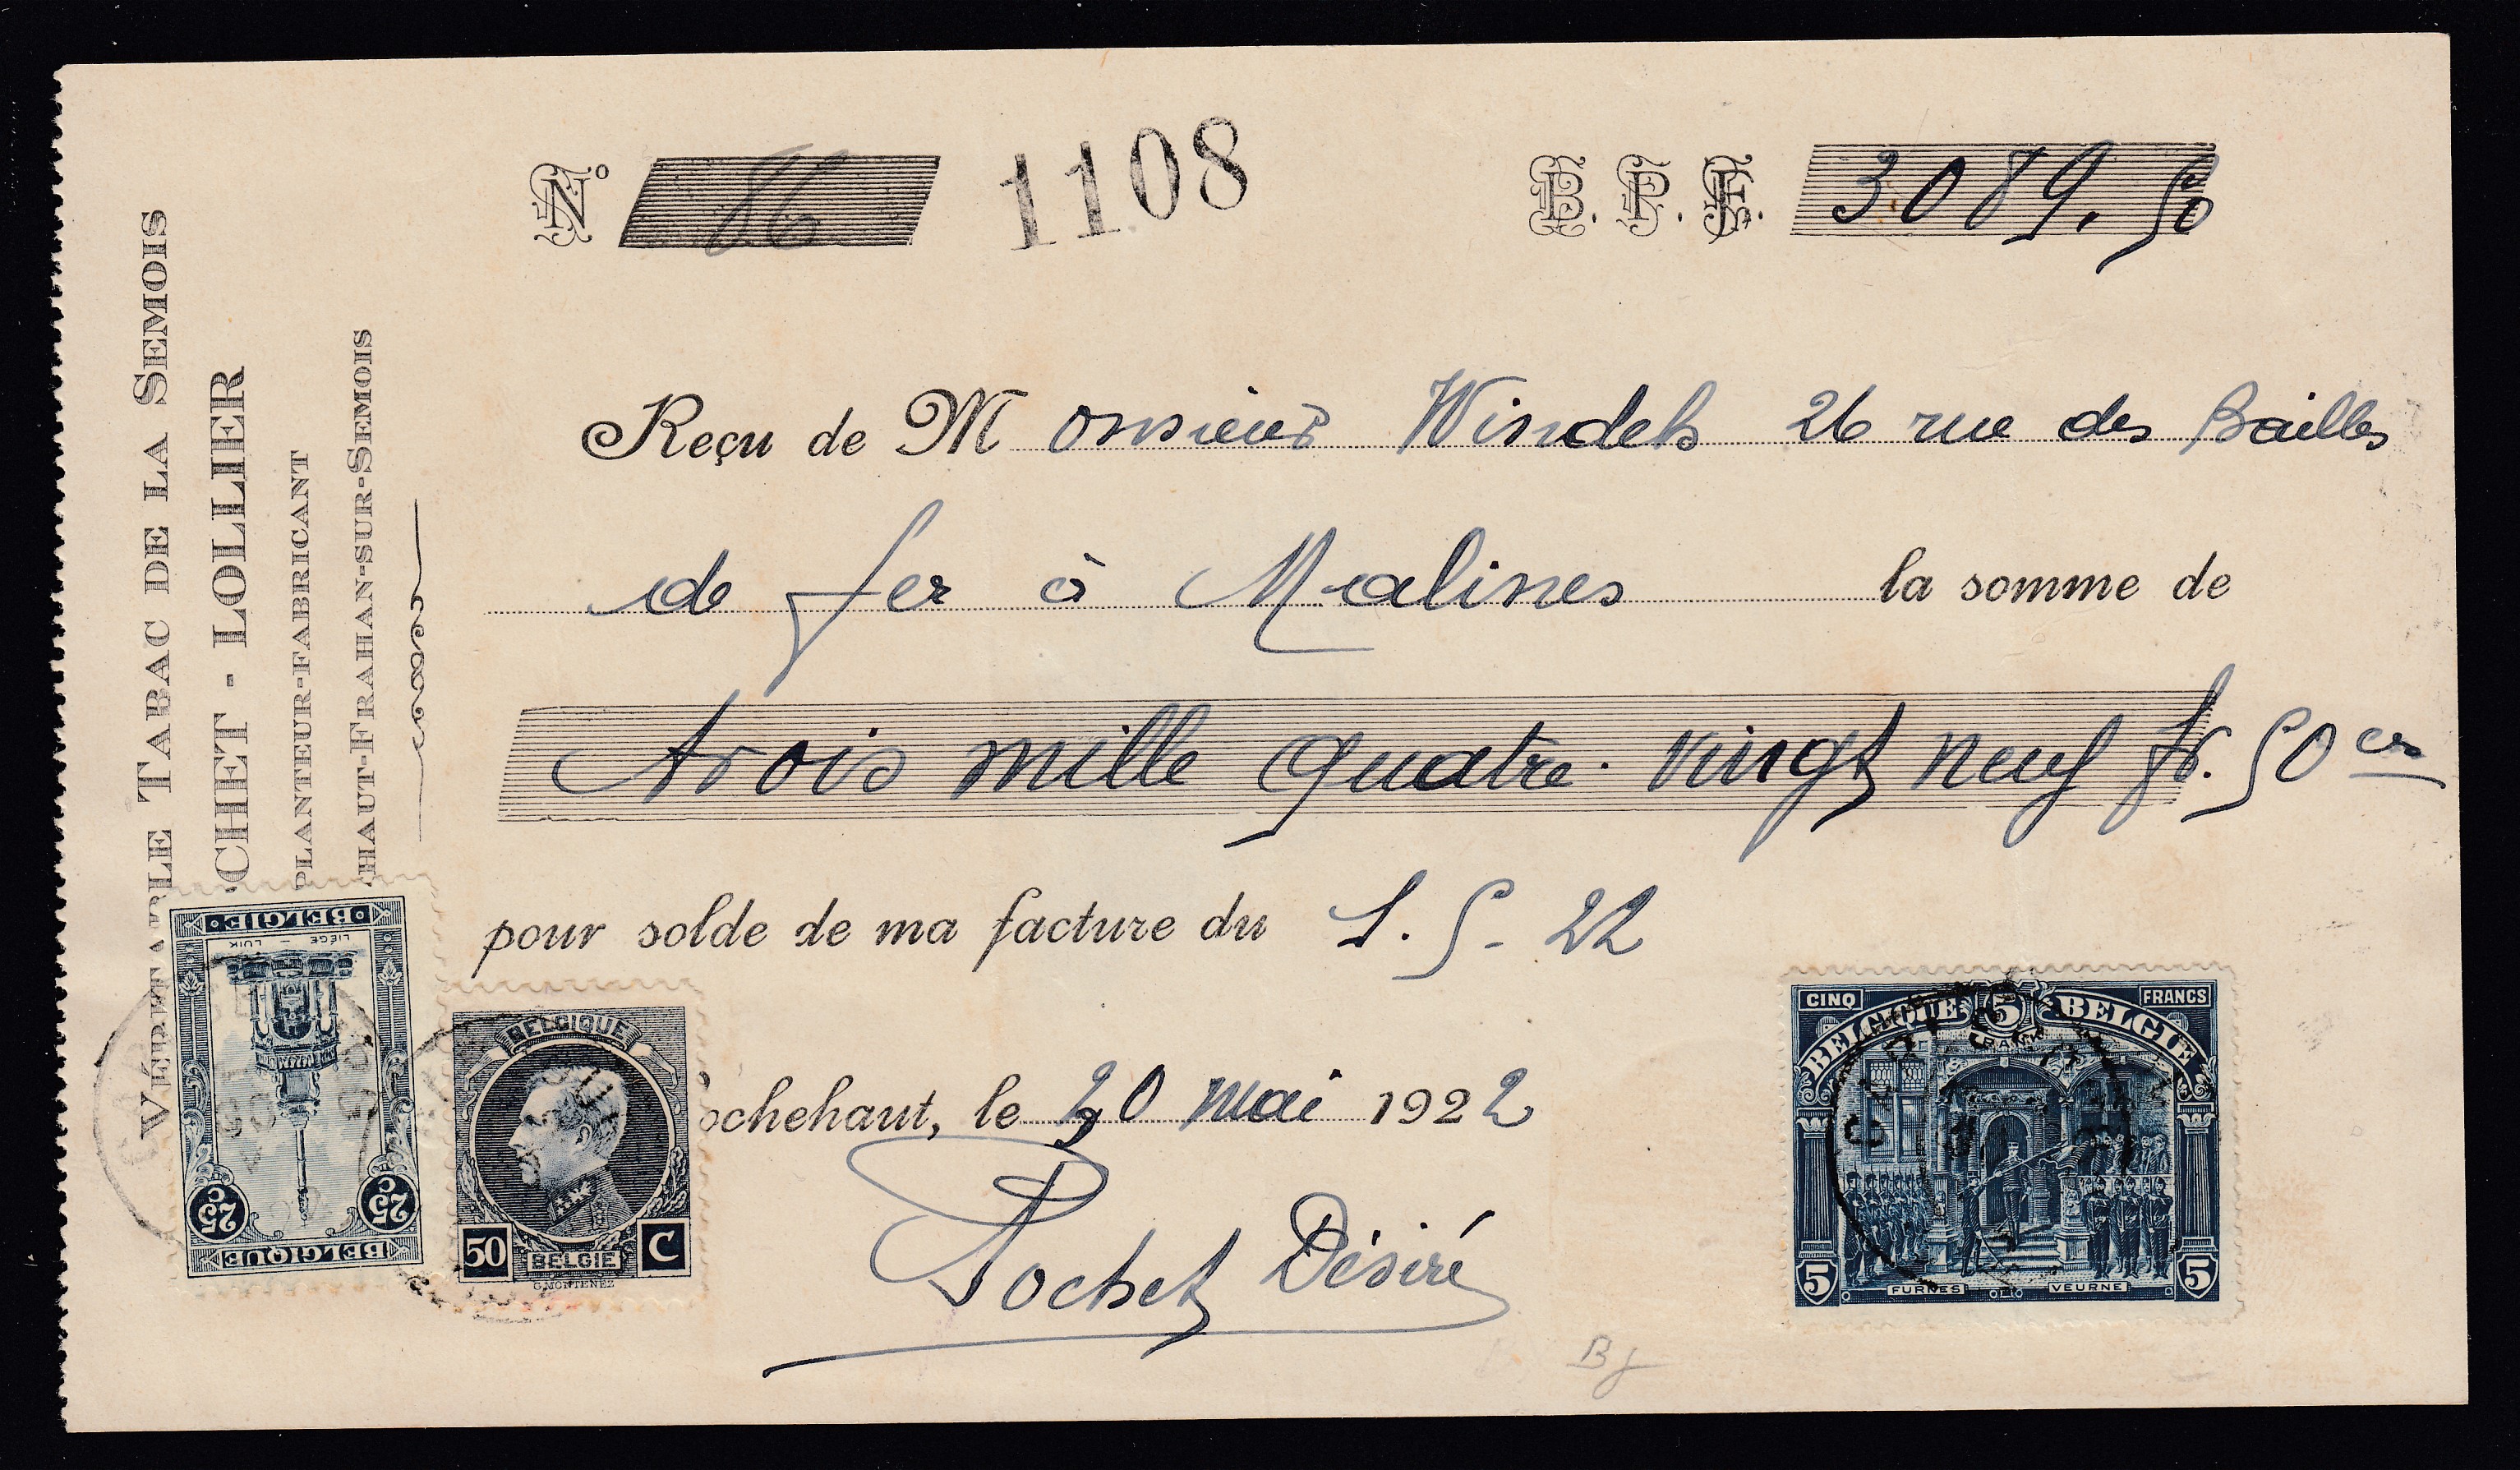 VÉRITABLE TABAC DE LA SEMOIS
CHET - LOLLIER
PLANTEUR-FABRICANT
HAUT-FRAHAN-SUR-SEMOIS
Nº 86 1108 B. P. F. 3089.50
Reçu de Monsieur Windels 26 rue des Bailles
de fer à Malines la somme de
trois mille quatre-vingt neuf fr. 50 ces
pour solde de ma facture du 1. 5- 22
ochehaut, le 20 mai 1922
Pochet Désiré
BELGIE
LIÉGE - LUIK
25 C 25 C
BELGIQUE
BELGIQUE
50 BELGIE C
G.MONTENEZ
CINQ 5 FRANCS
BELGIQUE FRANCS BELGIE
5 FURNES VEURNE 5